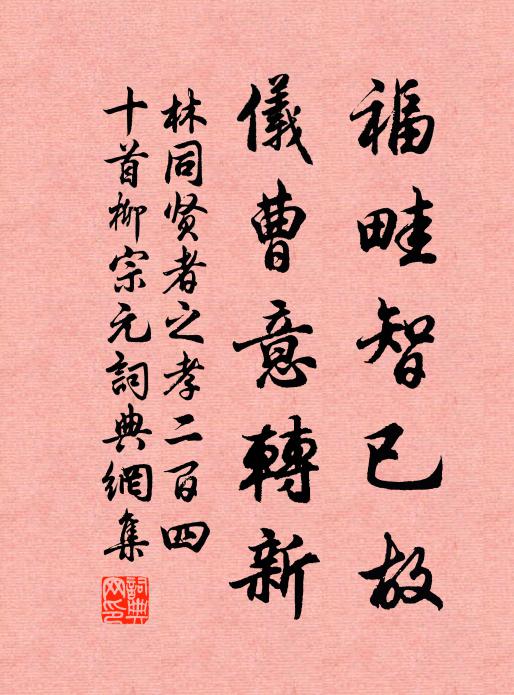 福畦智已故
儀曹意轉新
林同贤者之孝二百四
十首柳宗元詞典網集
詞典网印